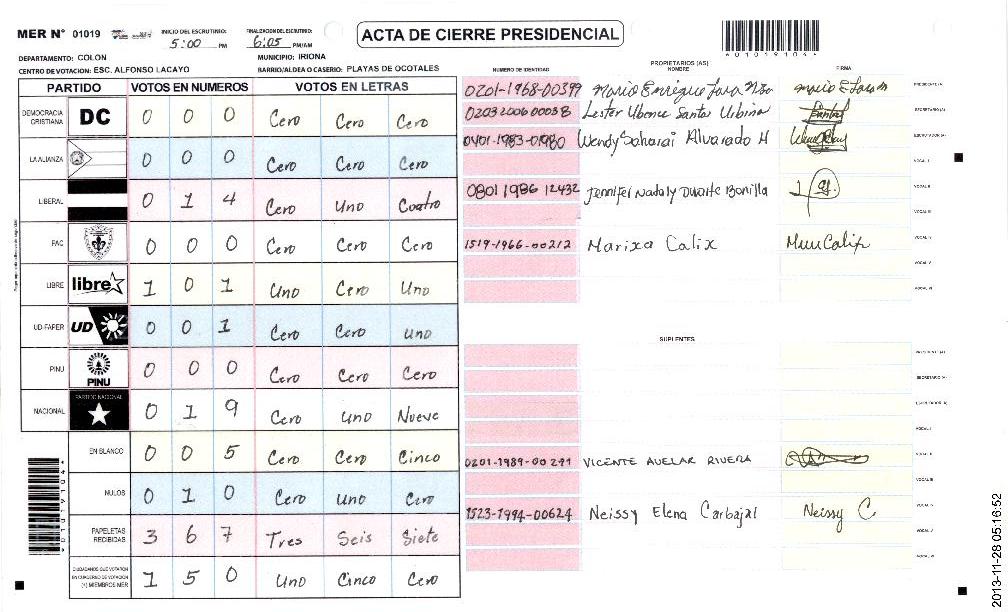 MER N° 01019 INICIO DEL ESCRUTINIO: 5:00 PM FINALIZACION DEL ESCRUTINIO: 6:05 PM/AM
ACTA DE CIERRE PRESIDENCIAL
*01019104*
DEPARTAMENTO: COLON MUNICIPIO: IRIONA
CENTRO DE VOTACION: ESC. ALFONSO LACAYO BARRIO/ALDEA O CASERIO: PLAYAS DE OCOTALES
PARTIDO VOTOS EN NUMEROS VOTOS EN LETRAS
DEMOCRACIA CRISTIANA DC 0 0 0 Cero Cero Cero
LA ALIANZA 0 0 0 Cero Cero Cero
LIBERAL 0 1 4 Cero Uno Cuatro
PAC 0 0 0 Cero Cero Cero
LIBRE libre 1 0 1 Uno Cero Uno
UD-FAPER UD 0 0 1 Cero Cero uno
PINU PINU 0 0 0 Cero Cero Cero
NACIONAL PARTIDO NACIONAL 0 1 9 Cero uno Nueve
EN BLANCO 0 0 5 Cero Cero Cinco
NULOS 0 1 0 Cero uno Cero
PAPELETAS RECIBIDAS 3 6 7 Tres Seis Siete
CIUDADANOS QUE VOTARON EN CUADERNO DE VOTACION (+) MIEMBROS MER 1 5 0 Uno Cinco Cero
PROPIETARIOS (AS)
NUMERO DE IDENTIDAD NOMBRE FIRMA
0201-1968-00399 Mario Enrique PRESIDENTE (A)
0203200600038 Lester Ubence Santos Urbina SECRETARIO (A)
0401-1983-01980 Wendy Saharai Alvarado H ESCRUTADOR (A)
VOCAL I
0801 1986 12432 Jennifer Nadaly Duarte Bonilla VOCAL II
VOCAL III
1519-1966-00212 Marixa Calix VOCAL IV
VOCAL V
VOCAL VI
SUPLENTES
PRESIDENTE (A)
SECRETARIO (A)
ESCRUTADOR (A)
VOCAL I
0201-1989-00291 VICENTE AVELAR RIVERA VOCAL II
VOCAL III
1523-1994-00624 Neissy Elena Carbajal Neissy C VOCAL IV
VOCAL V
VOCAL VI
*01019104*
2013-11-28 05:16:52